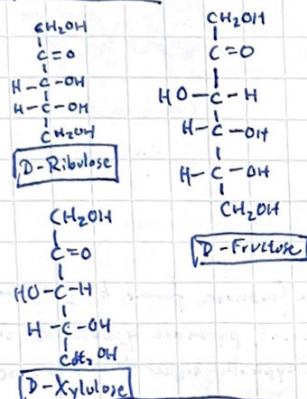 CH₂OH
C=O
H-C-OH
H-C-OH
CH₂OH
D-Ribulose
CH₂OH
C=O
HO-C-H
H-C-OH
H-C-OH
CH₂OH
D-Fructose
CH₂OH
C=O
HO-C-H
H-C-OH
CH₂OH
D-Xylulose